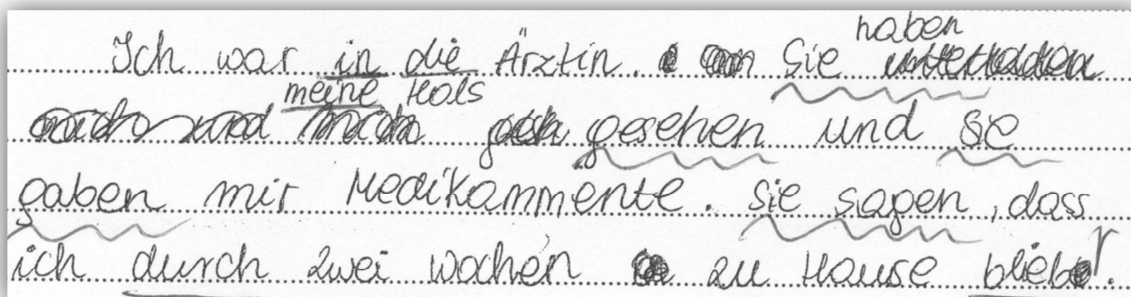 Ich war in die Ärztin. Sie haben
meine Hals gesehen und se
gaben mir Medikammente. Sie sagen, dass
ich durch zwei wochen zu Hause blieb.